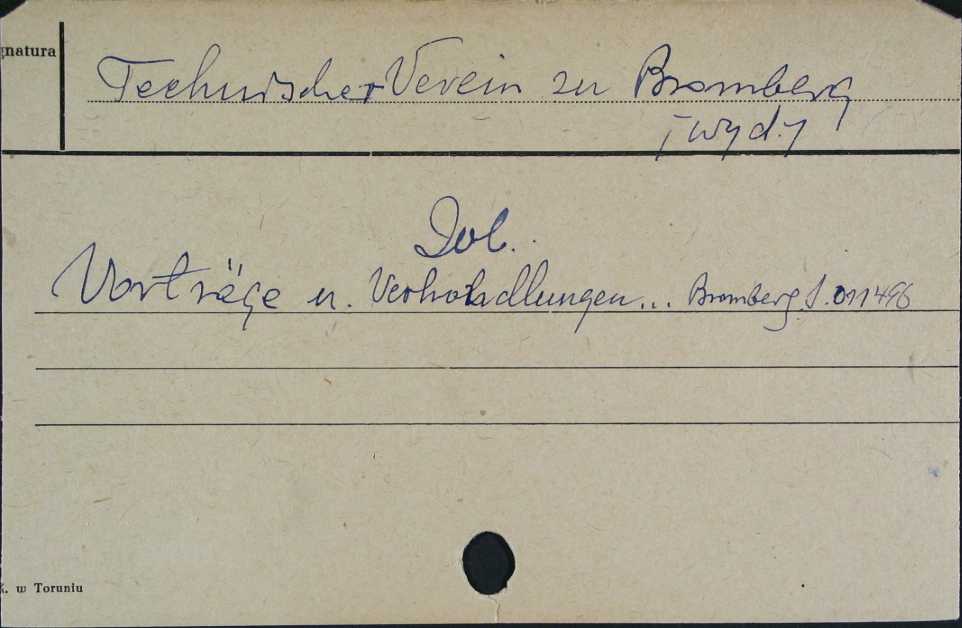 gnatura
Technischer Verein zu Bromberg
[wyd.]
Vorträge u. Verhandlungen... Bromberg S. 011496
K. w Toruniu